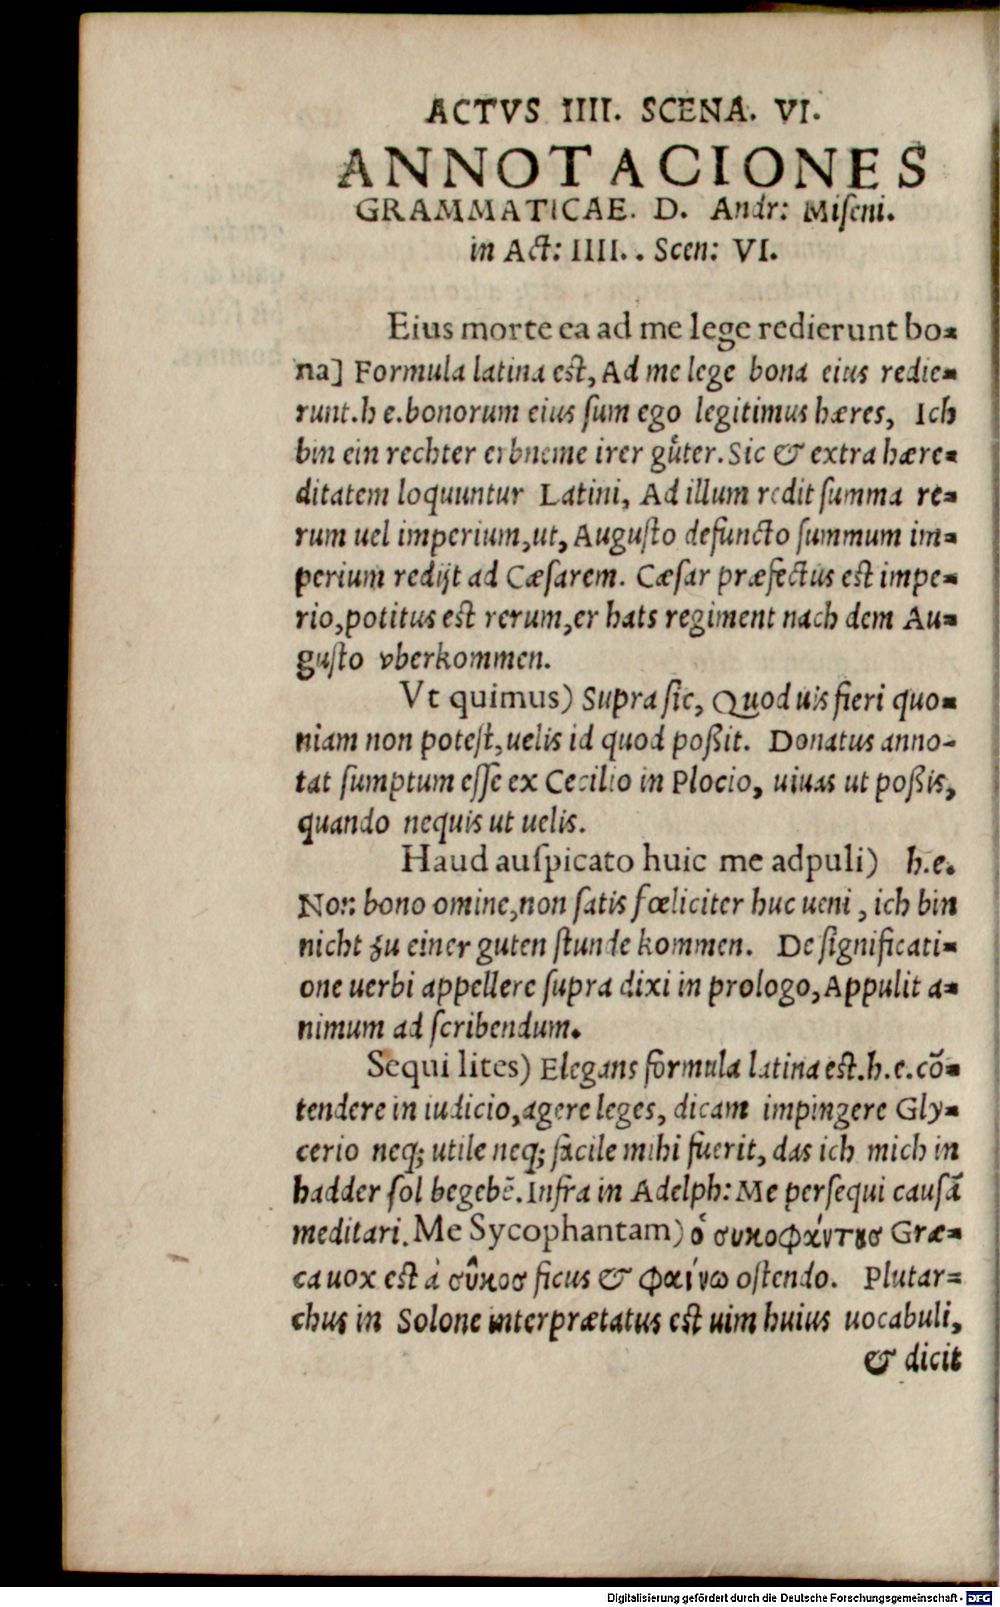 ACTVS IIII. SCENA. VI.
ANNOTACIONES
GRAMMATICAE. D. Andr: Miſeni.
in Act: IIII. . Scen: VI.
Eius morte ea ad me lege redierunt bo-
na] Formula latina est, Ad me lege bona eius redie-
runt.h e.bonorum eius ſum ego legitimus hæres, Ich
bin ein rechter erbneme irer guͤter. Sic & extra hære-
ditatem loquuntur Latini, Ad illum redit ſumma re-
rum uel imperium,ut, Auguſto defuncto ſummum im-
perium redijt ad Cæſarem. Cæſar præfectus est impe-
rio,potitus est rerum,er hats regiment nach dem Au-
guſto vberkommen.
Vt quimus) Supra ſic, Quod uis fieri quo-
niam non poteſt,uelis id quod poßit. Donatus anno-
tat ſumptum eſſe ex Cecilio in Plocio, uiuas ut poßis,
quando nequis ut uelis.
Haud auſpicato huic me adpuli) h.e.
Non bono omine,non ſatis fœliciter huc ueni, ich bin
nicht zu einer guten ſtunde kommen. De ſignificati-
one uerbi appellere ſupra dixi in prologo, Appulit a-
nimum ad ſcribendum.
Sequi lites) Elegans formula latina est.h.e.cõ-
tendere in iudicio,agere leges, dicam impingere Gly-
cerio neq; utile neq; facile mihi fuerit, das ich mich in
hadder ſol begebẽ. Infra in Adelph: Me perſequi cauſã
meditari. Me Sycophantam) ὁ συκοφάντησ Græ-
ca uox est à σῦκοσ ficus & φαίνω oſtendo. Plutar-
chus in Solone interprætatus est uim huius uocabuli,
& dicit
Digitalisierung gefördert durch die Deutsche Forschungsgemeinschaft - DFG